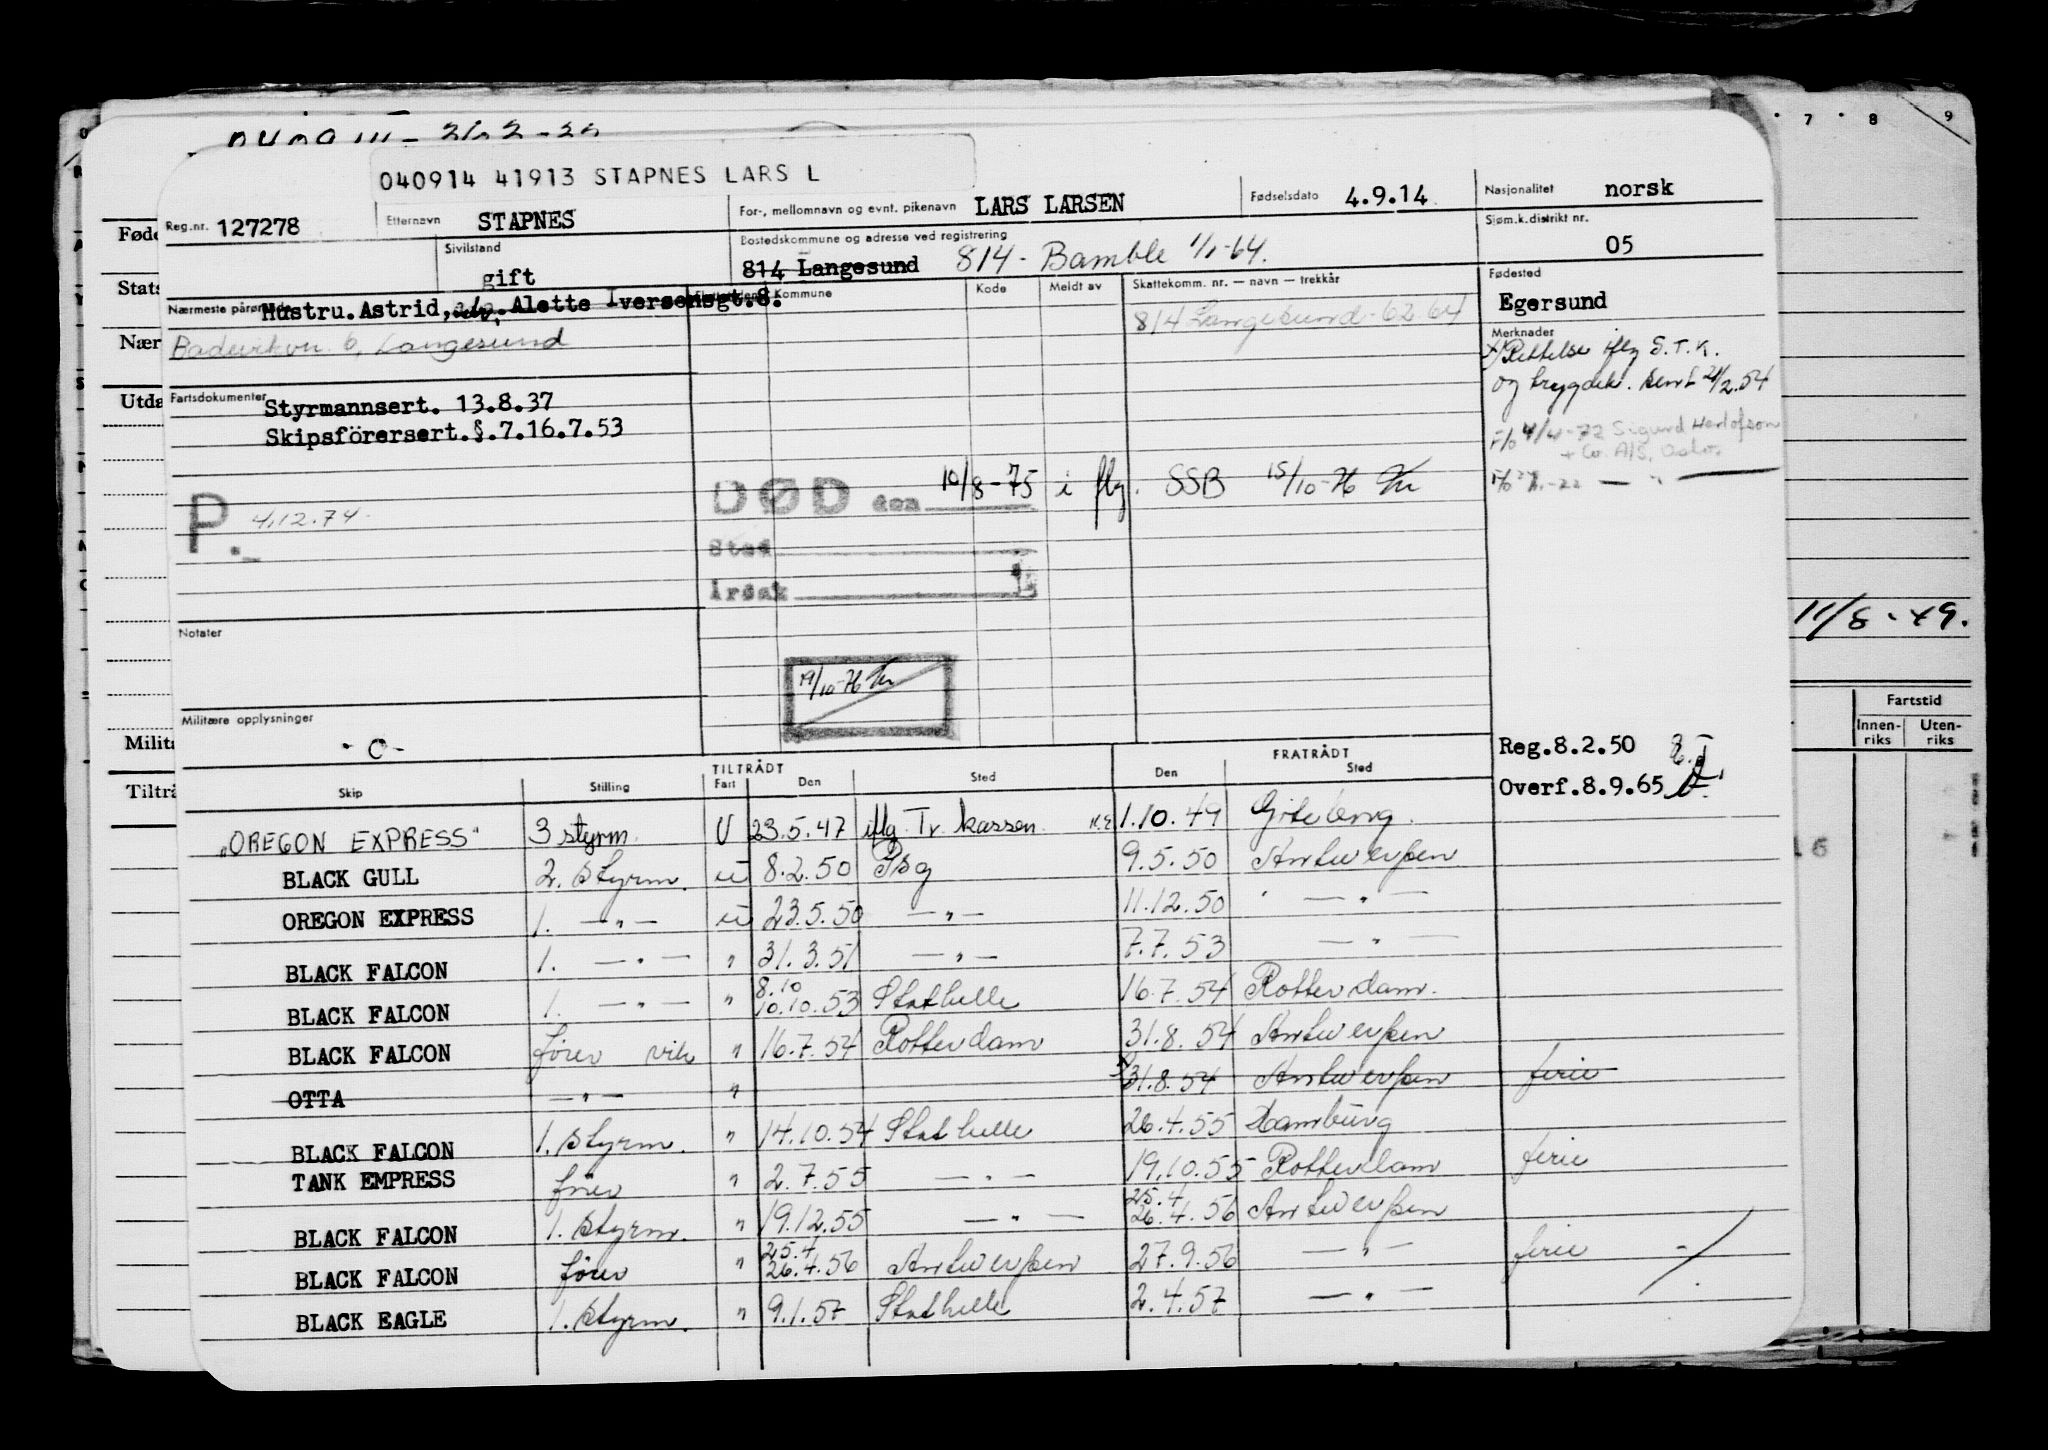 040914 41913 STAPNES LARS L
Reg.nr. 127278 Etternavn STAPNES For-, mellomnavn og evnt. pikenavn LARS LARSEN Fødselsdato 4.9.14 Nasjonalitet norsk
Sivilstand gift Bostedskommune og adresse ved registrering 814 Langesund 814 - Bamble 1/1-64. Sjøm.k.distrikt nr. 05
Nærmeste pårørende Hustru. Astrid, adr. Alette Iversensgt.8. Kommune Kode Meldt av Skattekomm. nr. — navn — trekkår Fødested Egersund
Badevikvn. 6, Langesund
814 Langesund - 62 64
Merknader
x) Rettelse iflg S.T.K.
og trygdek. sent 24/2.54
Sigurd Herlofson
+ Co. A/S, Oslo.
Fartsdokumenter Styrmannsert. 13.8.37
Skipsförersert.§.7.16.7.53
P. 4.12.74
DØD den 10/8-75 i flg. SSB 15/10-76
Sted
Årsak
Notater
19/10-76
Militære opplysninger
- O -
Reg.8.2.50
Overf.8.9.65
TILTRÅDT FRATRÅDT
Skip Stilling Fart Den Sted Den Sted
"OREGON EXPRESS" 3 styrm. U 23.5.47 iflg. Tr. kassen. 1.10.49 Göteborg.
BLACK GULL 2. styrm. u 8.2.50 Psg 9.5.50 Antwerpen
OREGON EXPRESS 1. — " — u 23.5.50 — " — 11.12.50 — " —
BLACK FALCON 1. — " — " 31.3.51 — " — 7.7.53 — " —
BLACK FALCON 1. — " — " 8.10 10.10.53 Stathelle 16.7.54 Rotterdam.
BLACK FALCON fører vik " 16.7.54 Rotterdam 31.8.54 Antwerpen
OTTA — " — " 31.8.54 Antwerpen ferie
BLACK FALCON 1. styrm. " 14.10.54 Stathelle 26.4.55 Hamburg
TANK EMPRESS fører " 2.7.55 — " — 19.10.55 Rotterdam ferie
BLACK FALCON 1. styrm. " 19.12.55 — " — 25.4 26.4.56 Antwerpen
BLACK FALCON fører " 25.4 26.4.56 Antwerpen 27.9.56 — " — ferie
BLACK EAGLE 1. styrm. " 9.1.57 Stathelle 2.4.57 — " —
Føde
Stats
Nær
Utda
Milit
Tiltrå
7 8 9
11/8.49.
Fartstid
Innen-
riks
Uten-
riks
16